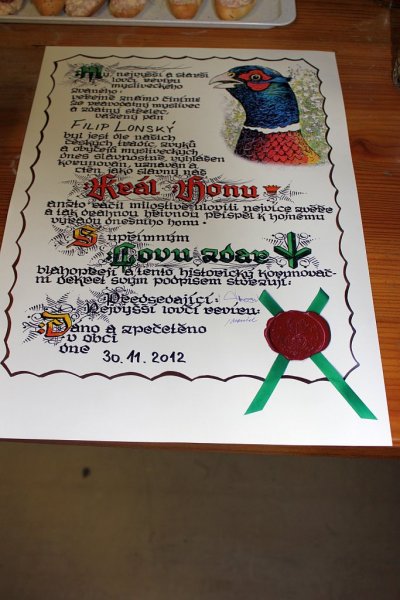 My, nejvyšší a starší
lovčí revíru
mysliveckého
zvaného:
veřejně známo činíme
že vravdatný myslivec
a zdatný střelec
vážený pán
FILIP LONSKÝ
byl jest dle našich
českých tradic, zvyků
a obyčejů mysliveckých
dnes slavnostně vyhlášen
korunován, uznáván a
ctěn jako slavný náš
Král Honu
anžto ráčil milostivě uloviti nejvíce zvěře
a tak drahnou hřivnou přispěl k honému
výřadu dnešního honu.
S upřímným
Lovu zdar
blahopřejí a tento historický korunovač-
ní dekret svým podpisem stvrzují:
Předsedající:
Nejvyšší lovčí revíru:
Dáno a zpečetěno
v obci
dne 30.11.2012